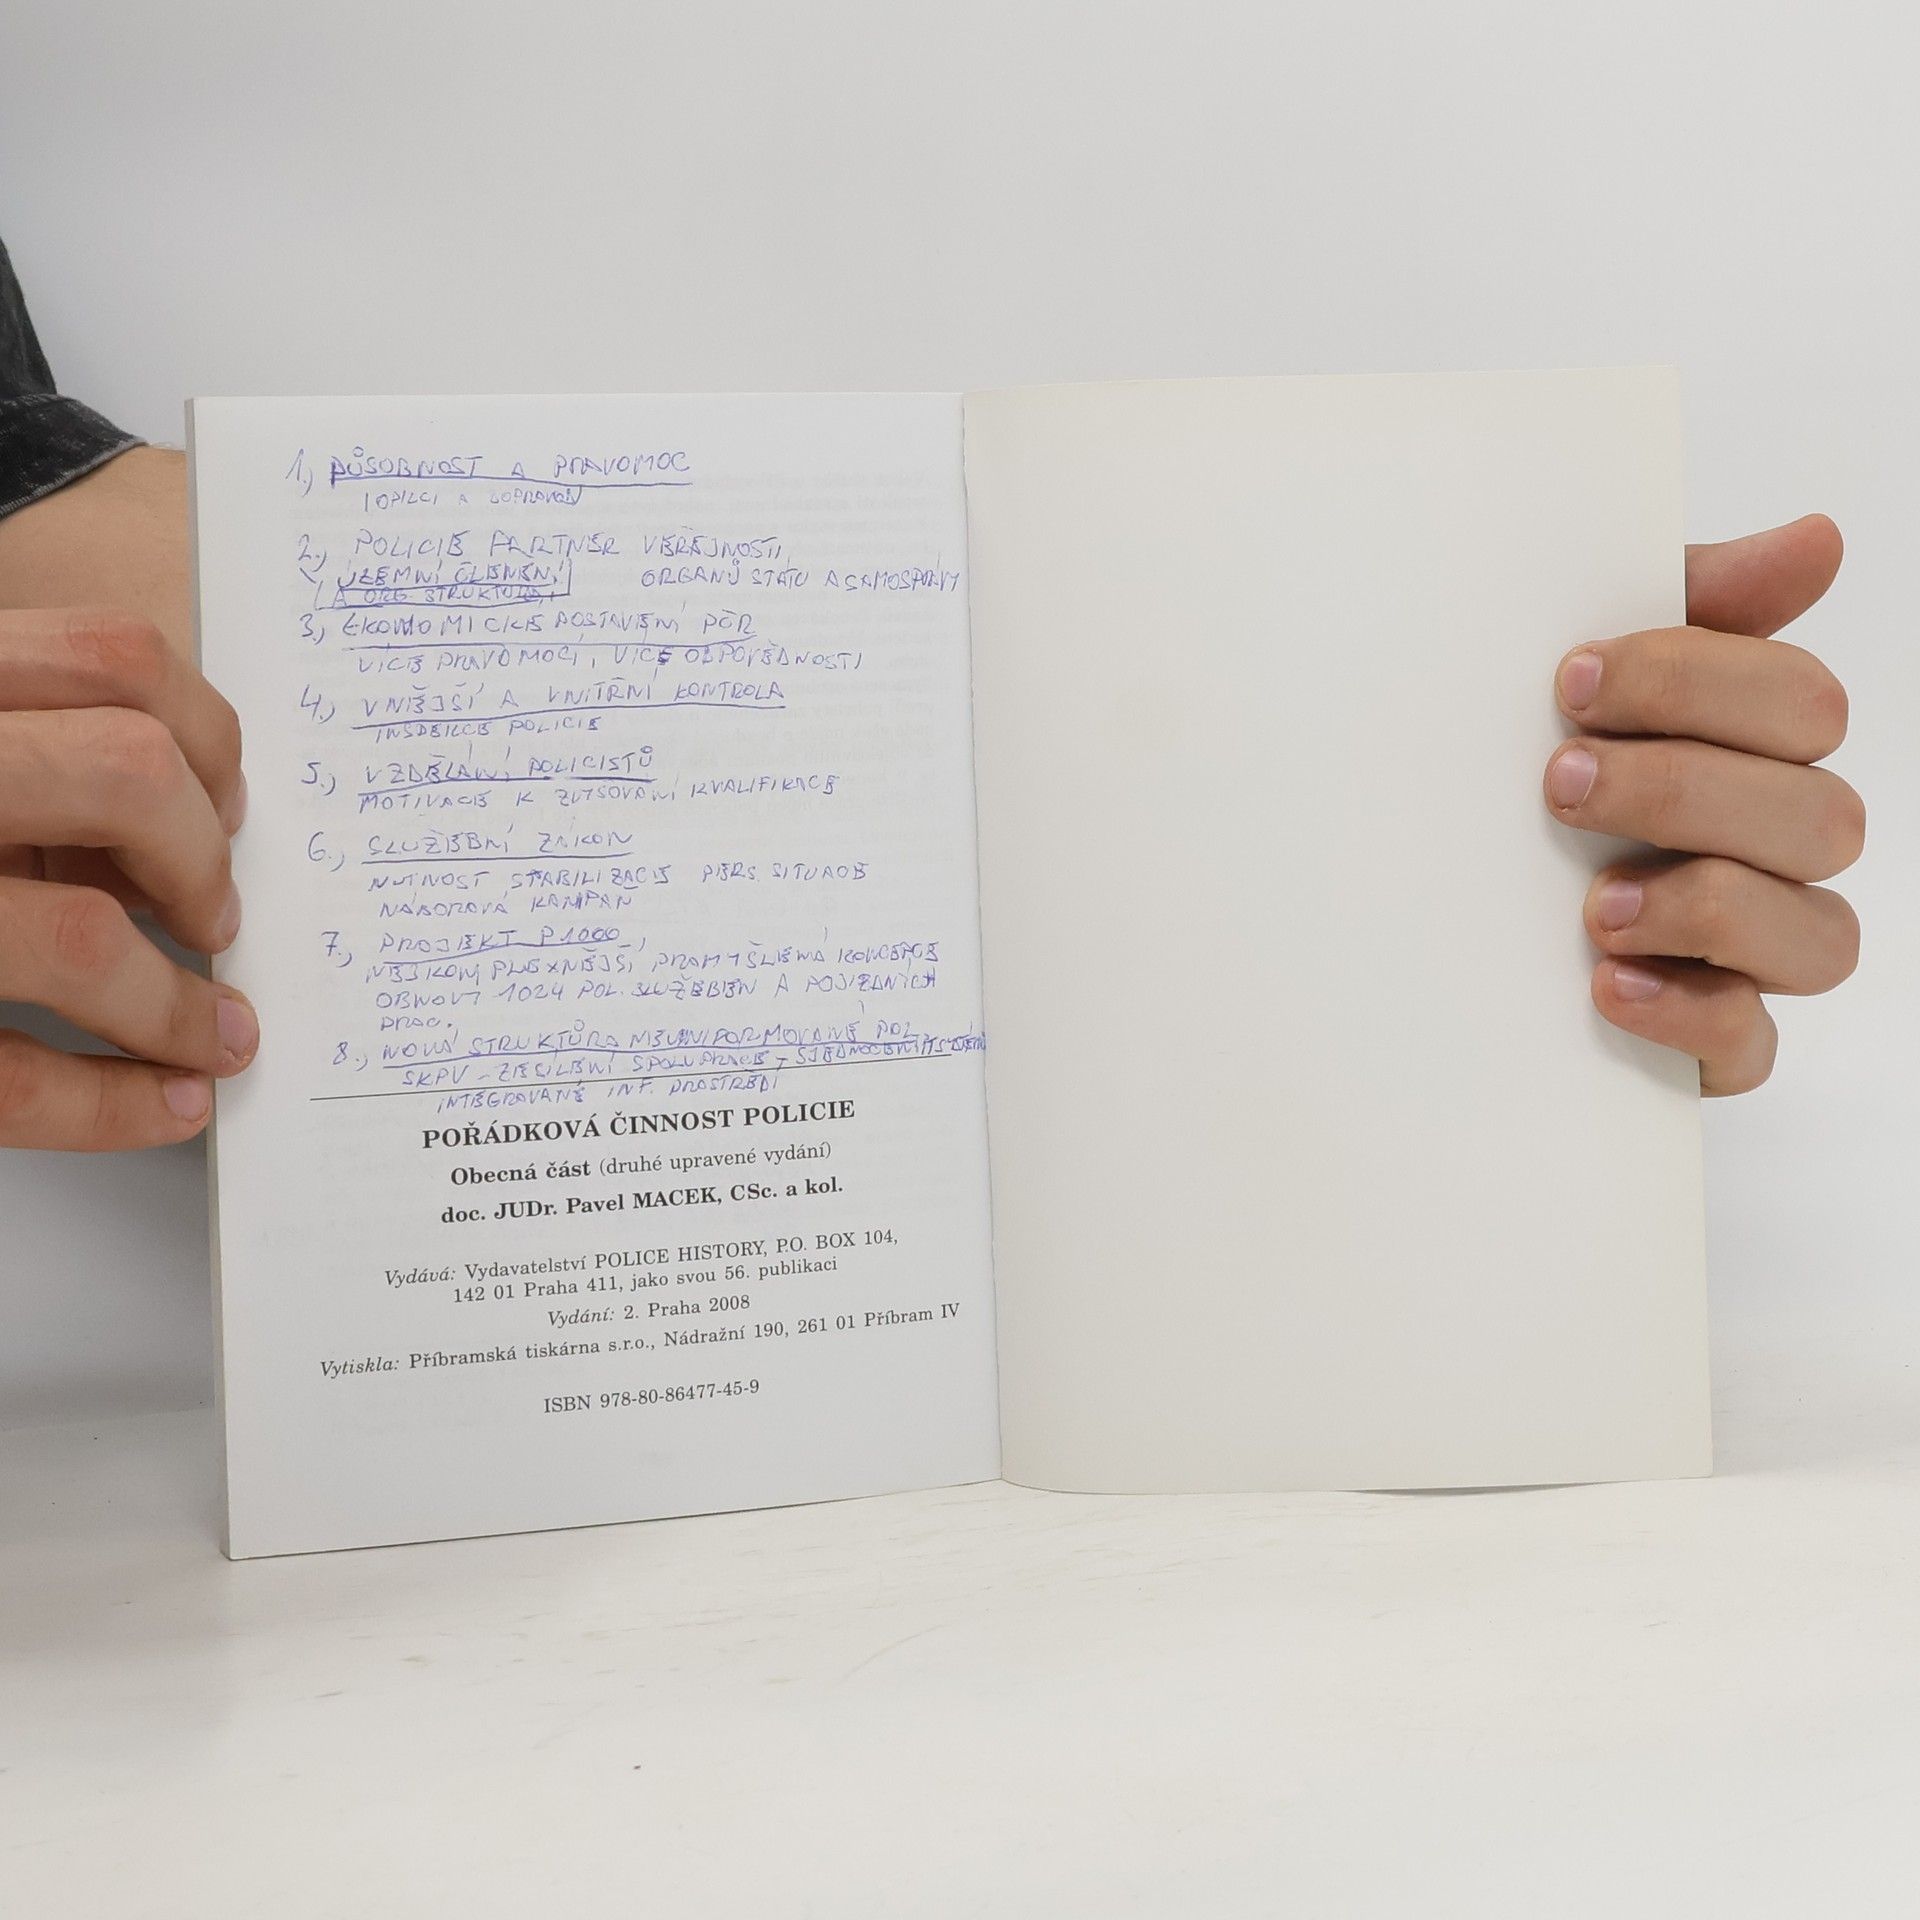 1.) PŮSOBNOST A PRAVOMOC
OPILCI A DOPRAVA
2.) POLICIE PARTNER VEŘEJNOSTI,
ÚZEMNÍ ČLENĚNÍ ORGÁNŮ STÁTU A SAMOSPRÁVY
A ORG. STRUKTURA,
3.) EKONOMICKÉ POSTAVENÍ PČR
VÍCE PRAVOMOCÍ, VÍCE ODPOVĚDNOSTI
4.) VNĚJŠÍ A VNITŘNÍ KONTROLA
INSPEKCE POLICIE
5.) VZDĚLÁNÍ POLICISTŮ
MOTIVACE K ZVYŠOVÁNÍ KVALIFIKACE
6.) SLUŽEBNÍ ZÁKON
NUTNOST STABILIZACE PERS. SITUACE
NÁBOROVÁ KAMPAŇ
7.) PROJEKT P1000
NEJKOMPLEXNĚJŠÍ, PROMYŠLENÁ KONCEPCE
OBNOVY 1024 POL. SLUŽEBEN A POJÍZDNÝCH
PRAC.
8.) NOVÁ STRUKTŮRA NEUNIFORMOVANÉ POL
SKPV - ZESÍLENÍ SPOLUPRÁCE - SJEDNOCENÍ
INTEGROVANÉ INF. PROSTŘEDÍ
POŘÁDKOVÁ ČINNOST POLICIE
Obecná část (druhé upravené vydání)
doc. JUDr. Pavel MACEK, CSc. a kol.
Vydává: Vydavatelství POLICE HISTORY, P.O. BOX 104,
142 01 Praha 411, jako svou 56. publikaci
Vydání: 2. Praha 2008
Vytiskla: Příbramská tiskárna s.r.o., Nádražní 190, 261 01 Příbram IV
ISBN 978-80-86477-45-9